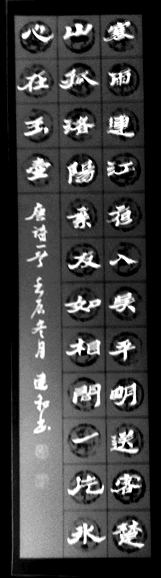 寒雨連江夜入吳平明送客楚
山孤洛陽亲友如相問一片氷
心在玉壺
唐诗一首 壬辰冬月 建